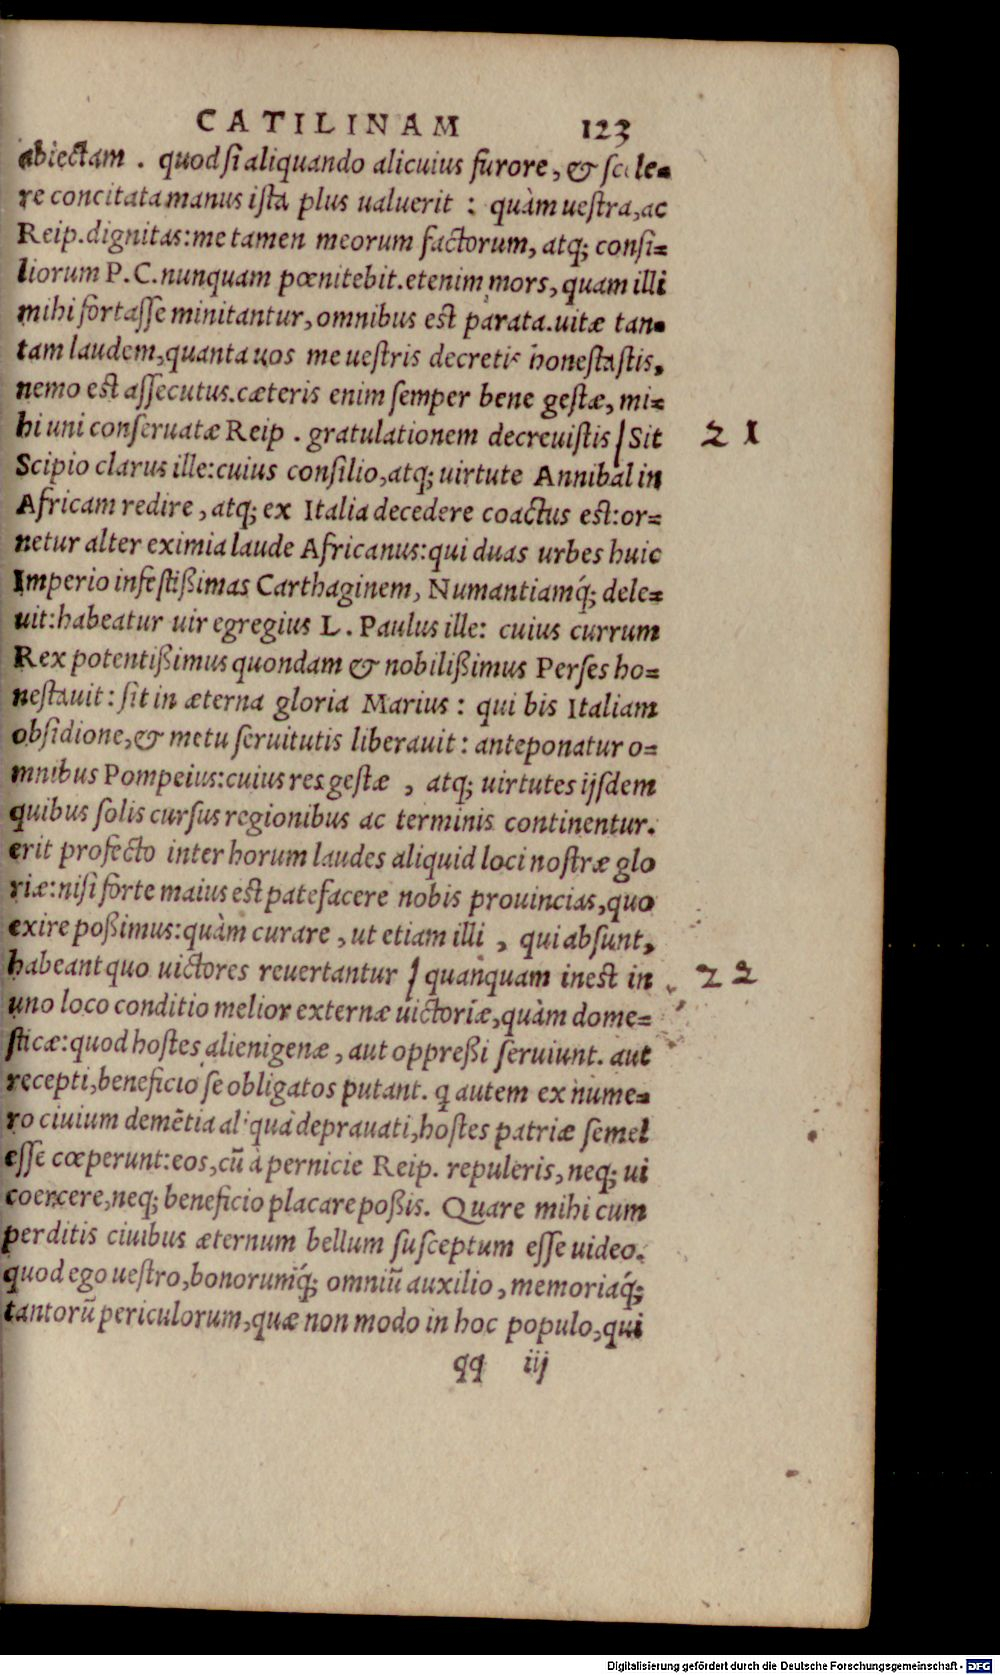 CATILINAM 123
abiectam . quod si aliquando alicuius furore, & scele-
re concitata manus ista plus ualuerit : quàm uestra, ac
Reip. dignitas: me tamen meorum factorum, atq; consi-
liorum P. C. nunquam pœnitebit. etenim mors, quam illi
mihi fortasse minitantur, omnibus est parata. uitæ tan-
tam laudem, quanta uos me uestris decretis honestastis,
nemo est assecutus. cæteris enim semper bene gestæ, mi-
hi uni conseruatæ Reip . gratulationem decreuistis / Sit 21
Scipio clarus ille: cuius consilio, atq; uirtute Annibal in
Africam redire, atq; ex Italia decedere coactus est: or-
netur alter eximia laude Africanus: qui duas urbes huic
Imperio infestißimas Carthaginem, Numantiamq́; dele-
uit: habeatur uir egregius L . Paulus ille: cuius currum
Rex potentißimus quondam & nobilißimus Perses ho-
nestauit : sit in æterna gloria Marius : qui bis Italiam
obsidione, & metu seruitutis liberauit : anteponatur o-
mnibus Pompeius: cuius res gestæ , atq; uirtutes ijsdem
quibus solis cursus regionibus ac terminis continentur.
erit profecto inter horum laudes aliquid loci nostræ glo
riæ: nisi forte maius est patefacere nobis prouincias, quo
exire poßimus: quàm curare , ut etiam illi , qui absunt,
habeant quo uictores reuertantur / quanquam inest in 22
uno loco conditio melior externæ uictoriæ, quàm dome-
sticæ: quod hostes alienigenæ, aut oppreßi seruiunt. aut
recepti, beneficio se obligatos putant. q autem ex nume-
ro ciuium demẽtia aliqua deprauati, hostes patriæ semel
esse cœperunt: eos, cũ à pernicie Reip. repuleris, neq; ui
coercere, neq; beneficio placare poßis. Quare mihi cum
perditis ciuibus æternum bellum susceptum esse uideo.
quod ego uestro, bonorumq́; omniũ auxilio, memoriaq́;
tantorũ periculorum, quæ non modo in hoc populo, qui
qq iij
Digitalisierung gefördert durch die Deutsche Forschungsgemeinschaft - DFG